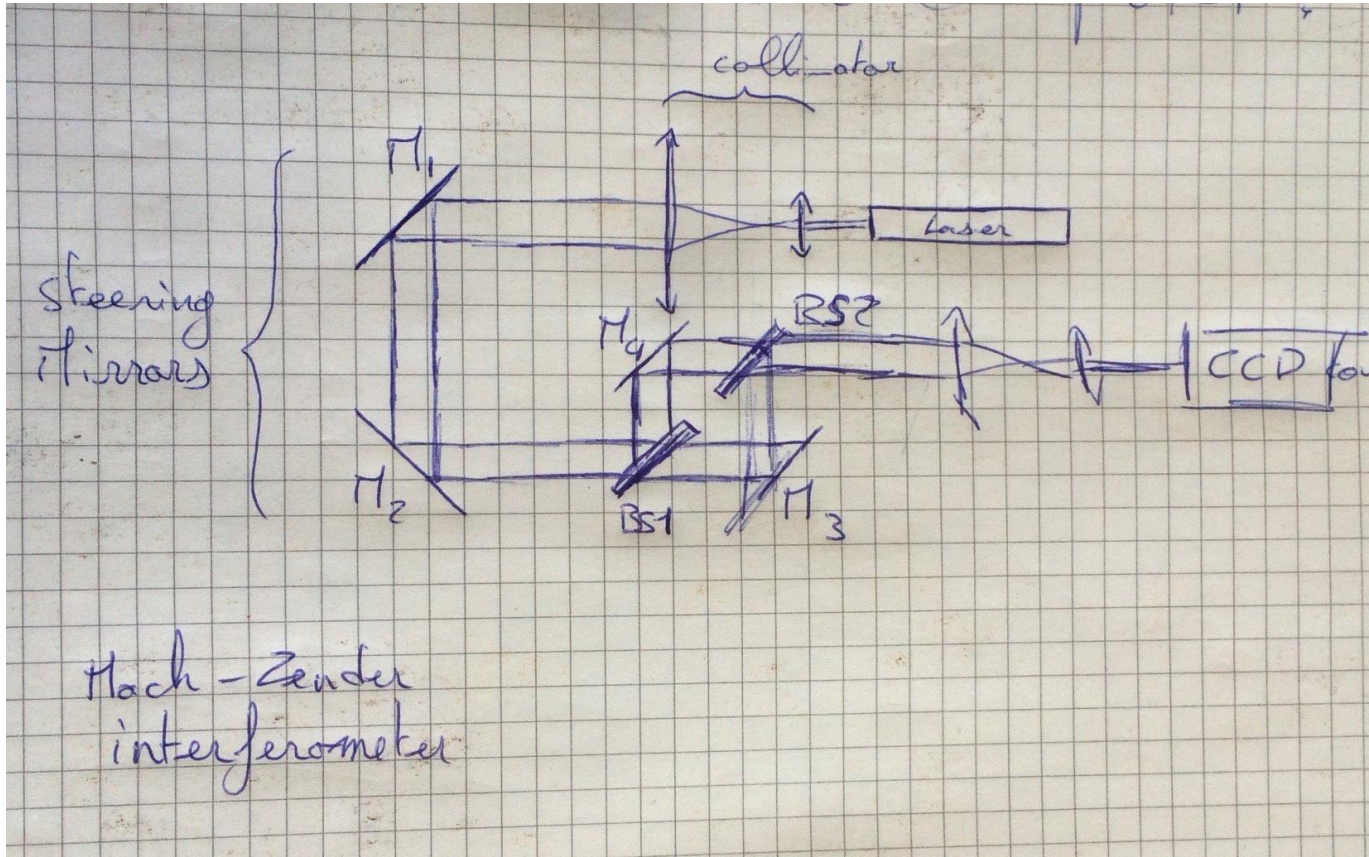 collimator
M1
Laser
Steering
Mirrors
M4
BS2
CCD
M2
BS1
M3
Mach-Zender
interferometer